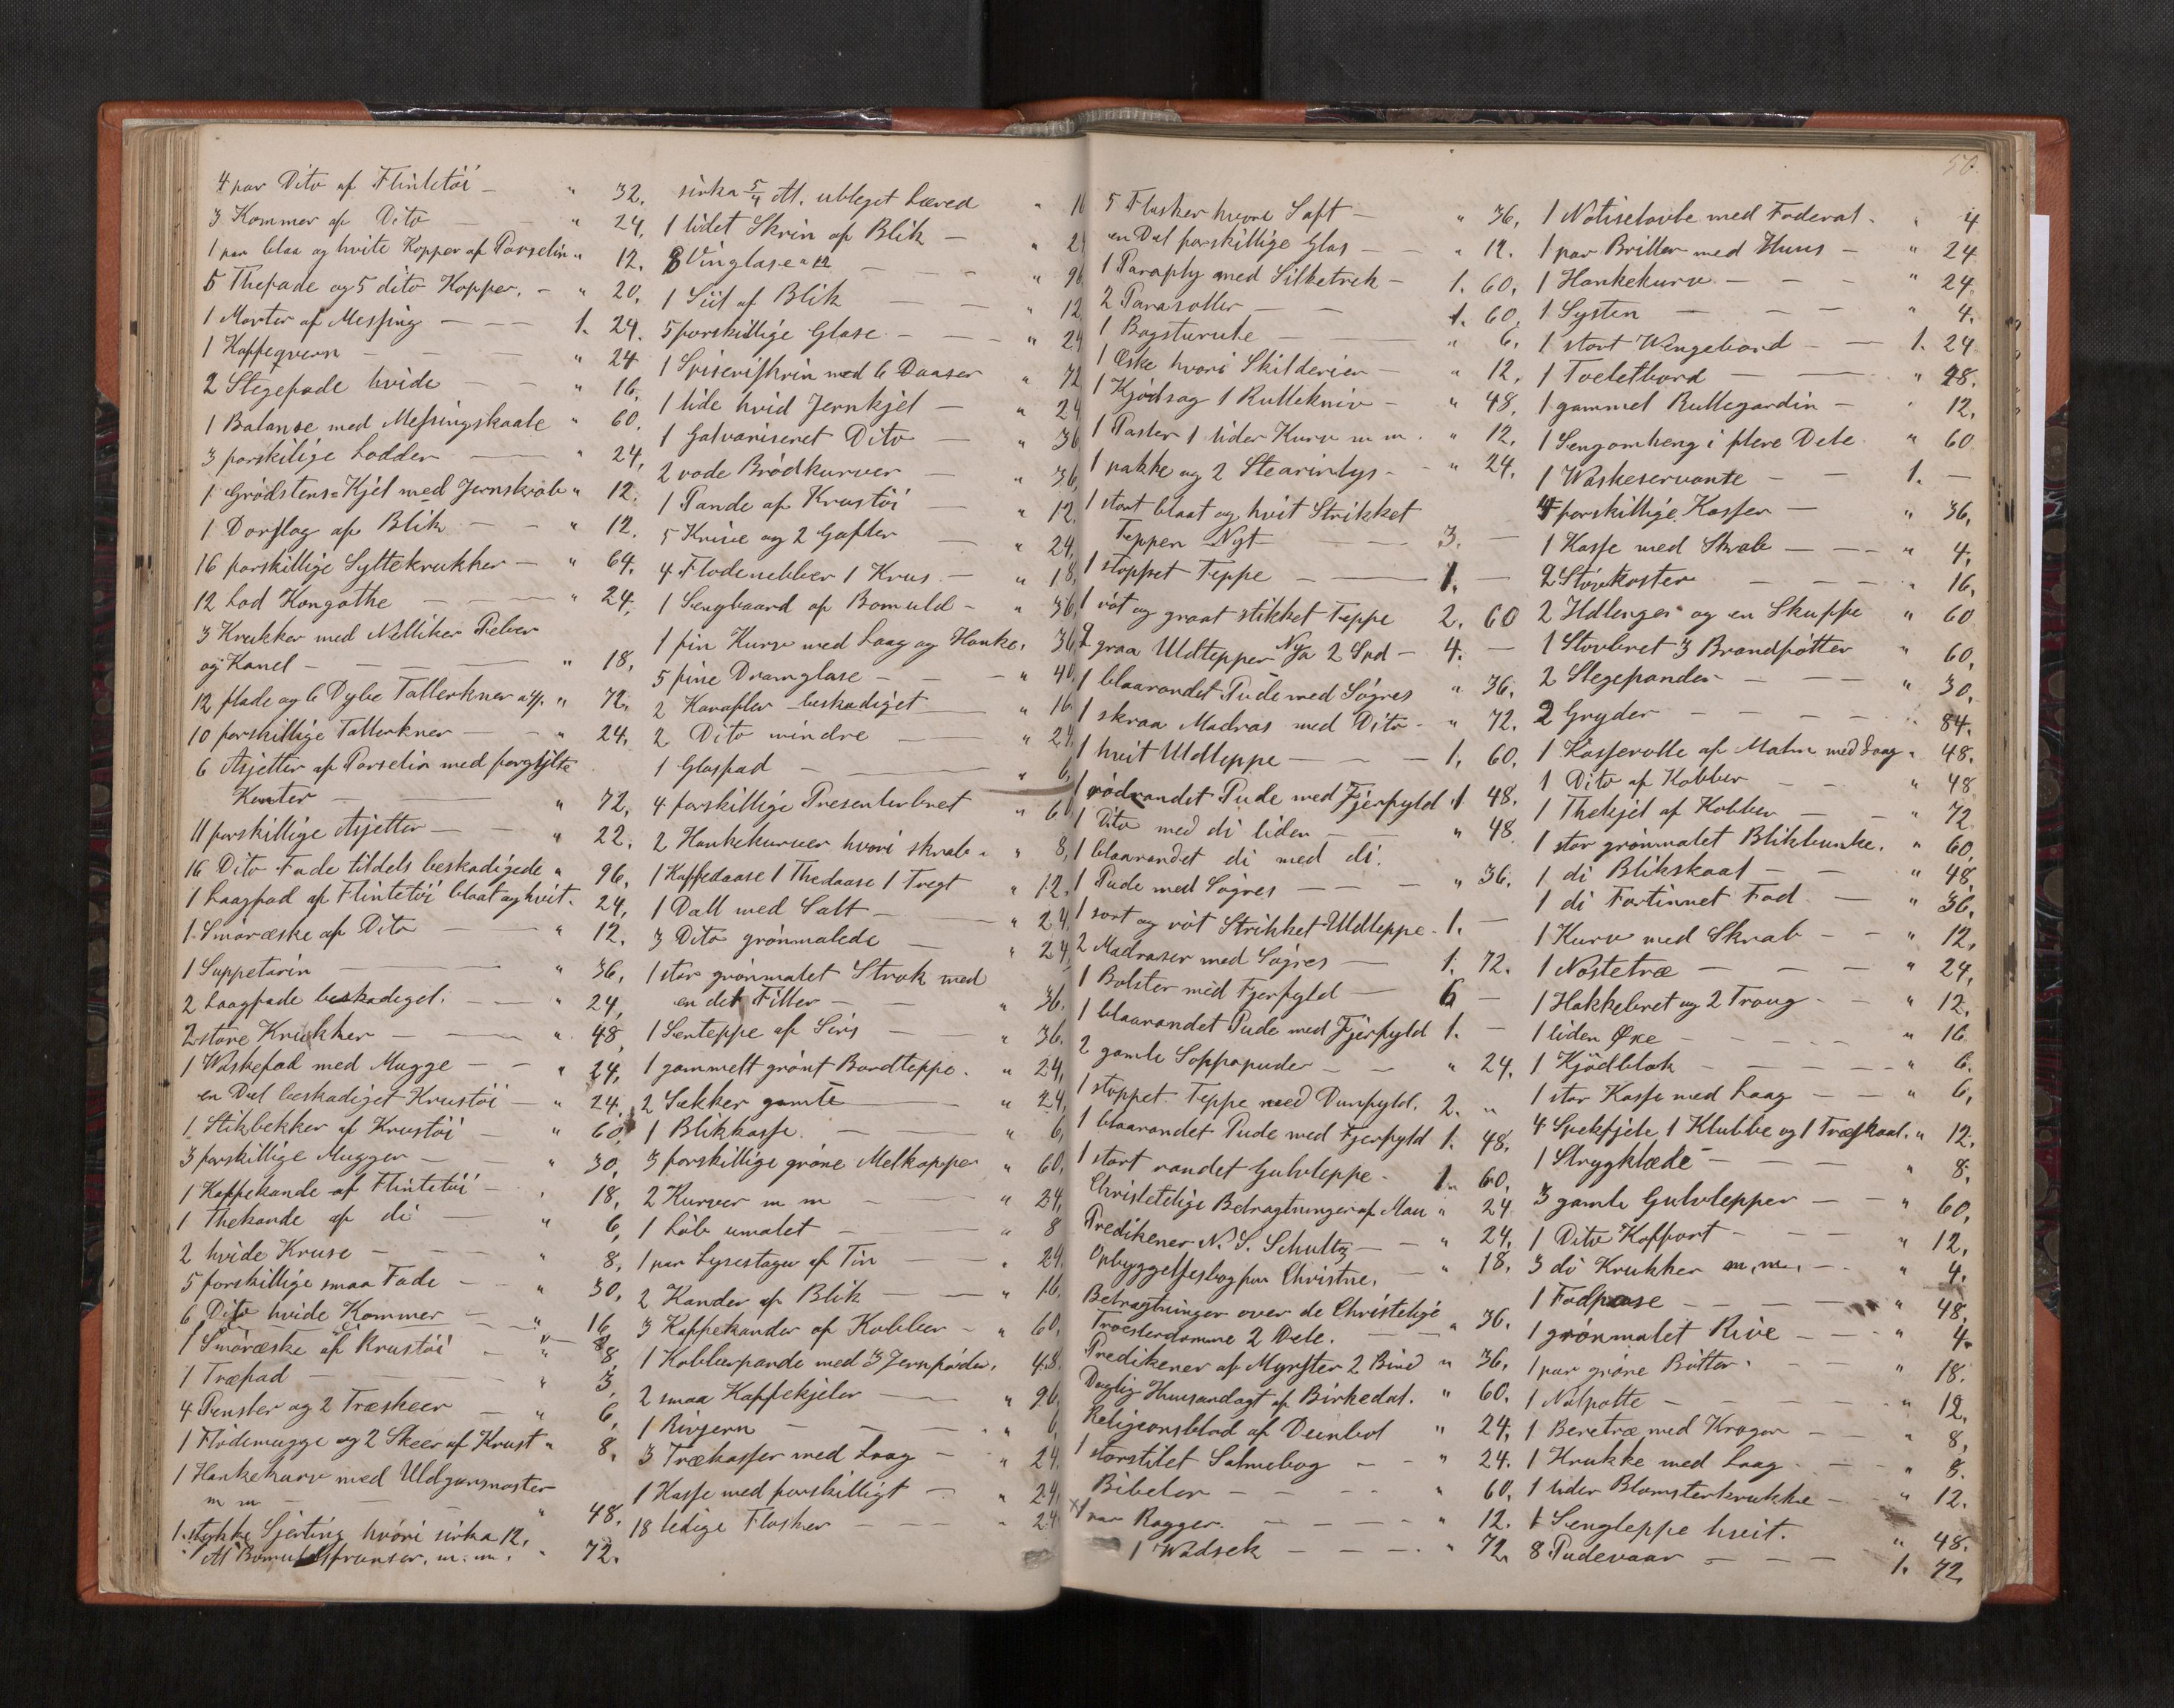 4 par Dito af Flintetöi - " 32.
3 Kommer af Dito - " 24.
1 par blaa og hvite Kopper af Porselin " 12.
5 Thefade og 5 dito Kopper. - " 20.
1 Morter af Messing - - - 1. 24.
1 Kaffeqvern - - - " 24
2 Stegefade hvide - - " 16.
1 Balanse med Messingskaale " 60.
3 forskilige Lodder - " 24,
1 Grödstens=Kjel med Jernskrab " 12.
1 Dorslag af Blik - - " 12.
16 forskillige Syltekrukker - " 64.
12 Lod Kongothe - " 24,
3 Krukker med Nelliker Peber
og Kanel - - - " 18,
12 flade og 6 Dybe Tallerkner a 4/. " 72.
10 forskillige Tallerkner - - " 24,
6 Asjetter af Porselin med forgyldte
Kanter - - " 72,
11 forskillige Asjetter - - " 22.
16 Dito Fade tildels beskadigede " 96,
1 Laagfad af Flintetöi blaat og hvit. 24,
1 Smöræske af Dito - " 12.
1 Suppetorin - " 36,
2 Laagfade beskadiget. - " 24,
2 store Krukker - - " 48,
1 Waskefad med Mugge - - " 24,
en Del beskadiget Krustöi - " 24.
1 Stikbekker af Krustöi - " 60,
3 forskillige Mugger - " 30,
1 Kaffekande af Flintetöi - " 18,
1 Thekande af di - " 6,
2 hvide Kruse - - " 8,
5 forskillige smaa Fade - " 30,
6 Dito hvide Kommer - " 16
1 Smöræske af Krustöi - " 8,
1 Træfad - " 3,
4 Pensler og 2 Træskeer - " 6,
1 Flödemugge og 2 Skeer af Krust " 8.
1 Hankekurv med Uldgarnsnöster
m m - " 48.
1 stykke Sjerting hvori sirka 12.
Al Bomuldsfranser. m. m. " 72.
sirka 5/4 Al. ubleget Lærred " 16
1 lidet Skrin af Blik - " 24
8 Vinglase a 12 - - - " 96
1 Siil af Blik - - " 12
5 forskillige Glase - - " 24
1 Spiseriskrin med 6 Daaser " 72
1 lide hvid Jernkjel - " 24
1 Galvaniseret Dito - " 36
2 vode Brödkurver - " 36,
1 Pande af Krustöi - " 12.
5 Knive og 2 Gafler - " 24,
4 Flodenebber 1 Krus - " 18,
1 Sengbaand af Bomuld - " 36,
1 fin Kurv med Laag og Hanke, 36,
5 fine Dramglase - - " 40,
2 Karafler beskadiget - " 16
2 Dito mindre - " 24,
1 Glasfad - " 6,
4 forskillige Presenterbret " 60
2 Hankekurver hvori skrab " " 8,
1 Kaffedaase 1 Thedaase 1 Tregt " 12.
1 Dall med Salt - " 24,
3 Dito grönmalede - " 24,
1 stor grönmalet Strok med
en del Filler - - " 36.
1 Senteppe af Sirs - " 36.
1 gammelt grönt Bordteppe. " 24,
2 Sekker gamle - " 24,
1 Blikkasse. - " 6,
3 forskillige gröne Melkopper " 60,
2 Kurver m m - " 24,
1 Löb umalet - " 8
1 par Lysestager af Tin - " 24.
2 Kander af Blik - " 16.
3 Kaffekander af Kobber - " 60,
1 Kobberpande med 3 Jernfödder, 48.
2 smaa Kaffekjeler - " 96
1 Rivjern - - " 6,
3 Trækasser med Laag - " 24,
1 Kasse med forskilligt - " 24,
18 ledige Flasker - - " 24
50.
5 Flasker hvori Saft - " 36,
en Del forskillige Glas - " 12.
1 Paraply med Silketrek - 1. 60,
2 Parasoller - - 1. 60,
1 Bogsturute - " 6,
1 Eske hvori Skilderier - " 12,
1 Kjödsag 1 Rullekniv - " 48,
1 Paster 1 lider Kurv m m. " 12,
1 pakke og 2 Stearinlys - " 24.
1 stort blaat og hvit Strikket
Teppen Nyt - 3. -
1 stoppet Teppe - 1. -
1 röt og graat stikket Teppe 2. 60
2 graa Uldtepper Nya 2 Spd - 4. -
1 blaarandet Pude med Sögres " 36.
1 skraa Madras med Dito - " 72.
1 hvit Uldteppe - - - 1, 60,
1 rödrandet Pude med Fjerfyld 1 48.
1 Dito med di liden - " 48
1 blaarandet di med di.
1 Pude med Sögres - - - " 36.
1 sort og röt Strikket Uldteppe - 1. -
2 Madraser med Sögres - 1. 72.
1 Bolster med Fjerfyld - 6 -
1 blaarandet Pude med Fjerfyld 1. -
2 gamle Soffapuder - - " 24.
1 stoppet Teppe med Dunfyld. 2. "
1 blaarandet Pude med Fjerfyld 1. 48.
1 stort randet Gulvteppe - 1. 60,
Christelige Betragtninger af Mau " 24
Predikener N. S. Schultz - " 24,
Opbyggelsesbog for Christne. - " 18.
Betragtninger over de Christelige
Troeslerdomme 2 Dele. - " 36.
Predikener af Mynster 2 Bind " 36.
Daglig Huusandagt af Birkedal. " 60.
Religeonsblad af Deinbol " 24,
1 storstilet Salmebog - - " 24.
Bibeler - - " 60,
x 1 par Ragger. - - - " 12.
1 Wadsek - - - " 72.
1 Notisetavle med Foderal - " 4
1 par Briller med Huus - " 24
1 Hankekurv - - - " 24
1 Systen - - - " 4.
1 stort Wengebord - - 1. 24
1 Toeletbord - " 48.
1 gammel Rullegardin - " 12.
1 Sengomheng i flere Dele. " 60
1 Waskeservante - - 1. -
4 forskillige Kasser - " 36,
1 Kasse med Skrab - - - " 4.
2 Stövekoster - - - " 16,
2 Ildtenger og en Skuffe " 60
1 Stovbret 3 Brandfötter " 60,
2 Stegepander - - - " 30,
2 Gryder - - - " 84.
1 Kasserolle af Malm med Laag " 48.
1 Dito af Kobber - - " 48
1 Thekjel af Kobber - " 72
1 stor grönmalet Blikbunke. " 60,
1 di Blikskaal - - " 48,
1 di Fortinnet Fad - " 36,
1 Kurv med Skrab - - " 12,
1 Nöstetræ - - - " 24,
1 Hakkebret og 2 Troug - " 12,
1 liden Øxe - - - " 16
1 Kjödblok - - - " 6.
1 stor Kasse med Laag - - " 6,
4 Spekfjele 1 Klubbe og 1 Træskaal. " 12.
1 Strygklæde - - " 8,
3 gamle Gulvtepper - - " 60,
1 Dito Koffort - - - " 12,
3 di Krukker m.m. - " 4.
1 Fodpose - - " 48,
1 grönmalet Rive - - - " 4
1 par gröne Bötter - - - " 18.
1 Natpotte - - - - " 12,
1 Beretræ med Kroger - - " 8,
1 Krukke med Laag - - " 8.
1 lider Blomsterkrukke - " 12.
1 Sengteppe hvit. " 48.
8 Pudevaar - - 1. 72,